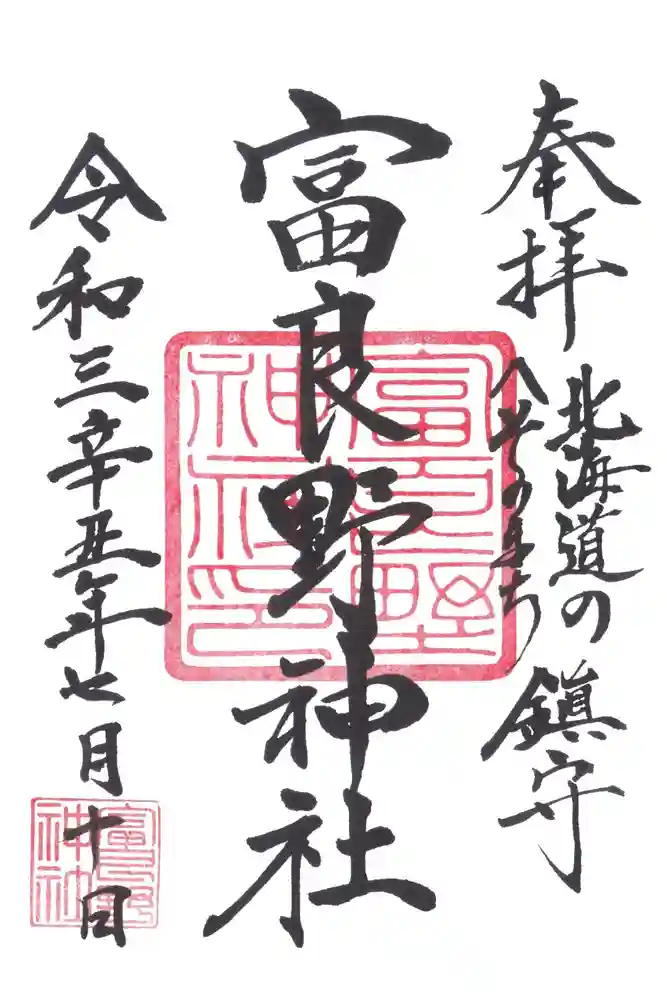 奉拝
北海道の
へそのまち
鎮守
富良野神社
富良野神社印
令和三辛丑年七月十日
富良野神社